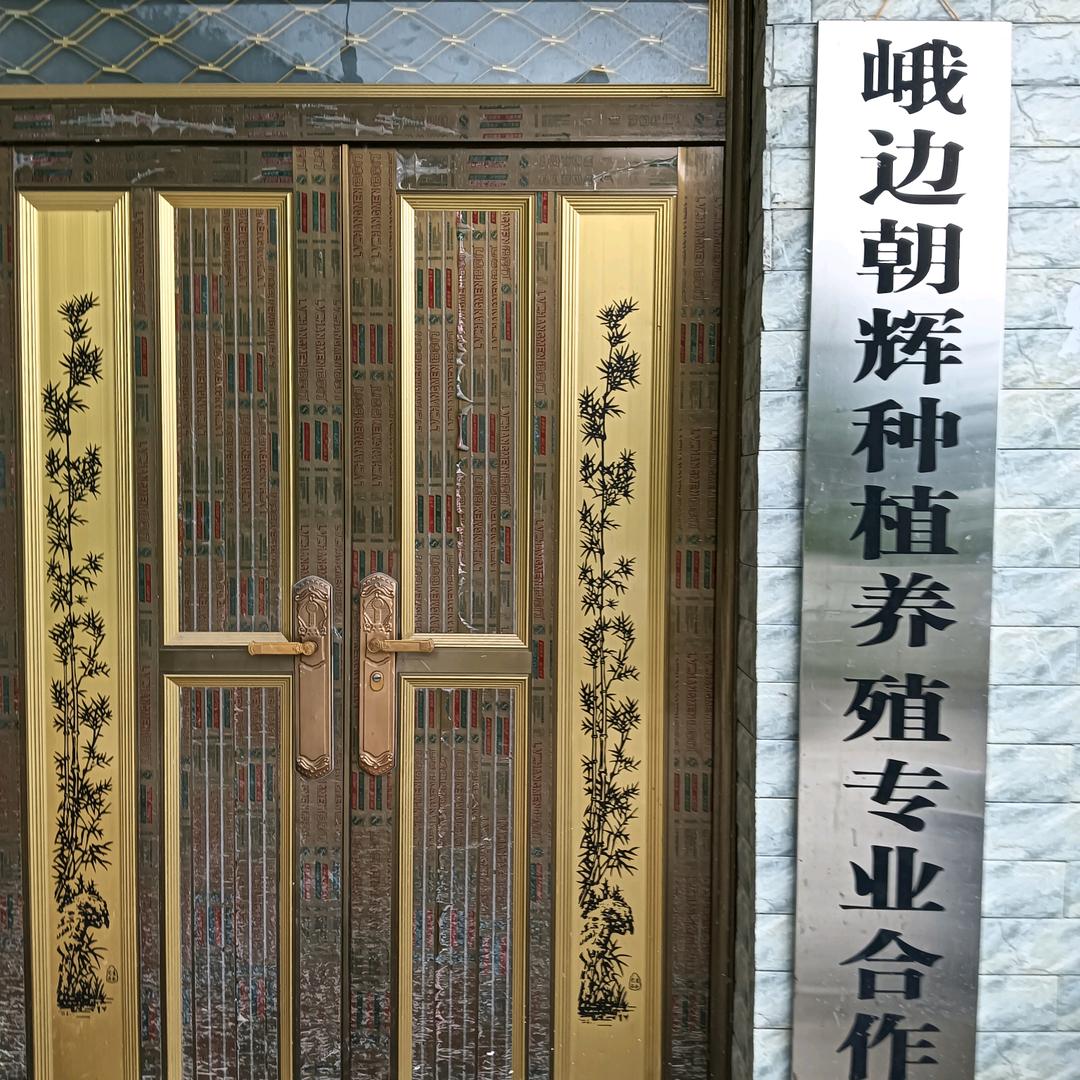 峨边朝辉种植养殖专业合作